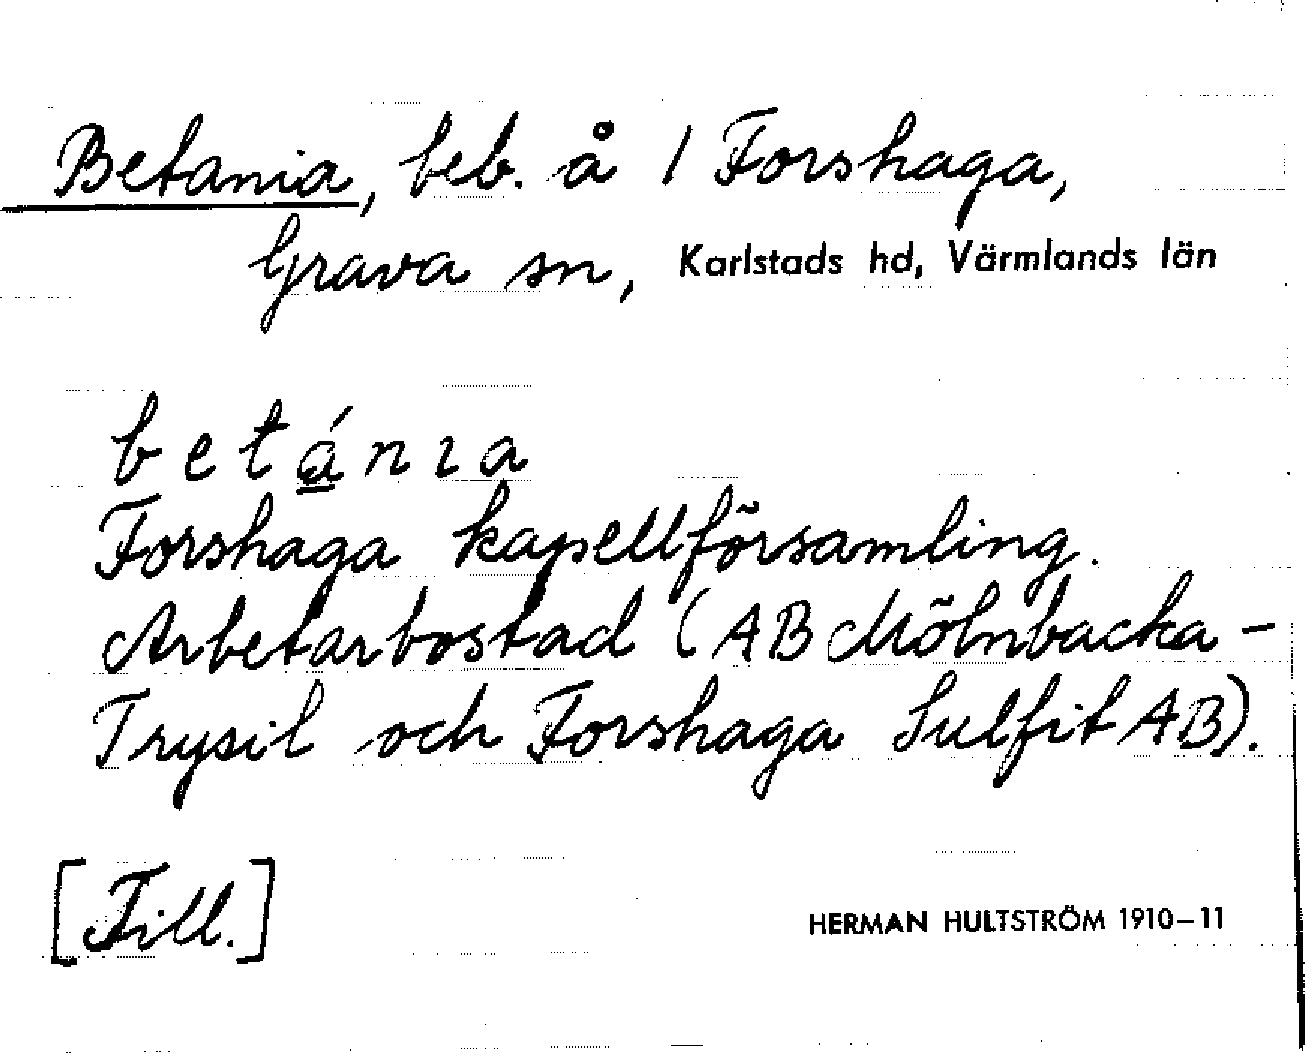 Betania, beb. å 1 Forshaga,
Grava sn, Karlstads hd, Värmlands län
betánıa
Forshaga kapellförsamling.
Arbetarbostad (AB Mölnbacka-
Trysil och Forshaga Sulfit AB).
[Till.]
HERMAN HULTSTRÖM 1910–11